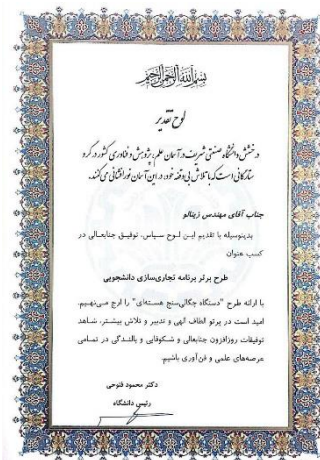 بسم الله الرحمن الرحیم
لوح تقدیر
درخشش دانشگاه صنعتی شریف در آسمان علم، پژوهش و فناوری کشور در گرو
ستارگانی است که با تلاش بی‌وقفه خود، در این آسمان نورافشانی می‌کنند.
جناب آقای مهندس زینالو
بدینوسیله با تقدیم این لوح سپاس، توفیق جنابعالی در
کسب عنوان
طرح برتر برنامه تجاری‌سازی دانشجویی
با ارائه طرح "دستگاه چگالی‌سنج هسته‌ای" را ارج می‌نهیم.
امید است در پرتو الطاف الهی و تدبیر و تلاش بیشتر، شاهد
توفیقات روزافزون جنابعالی و شکوفایی و بالندگی در تمامی
عرصه‌های علمی و فن‌آوری باشیم.
دکتر محمود فتوحی
رئیس دانشگاه